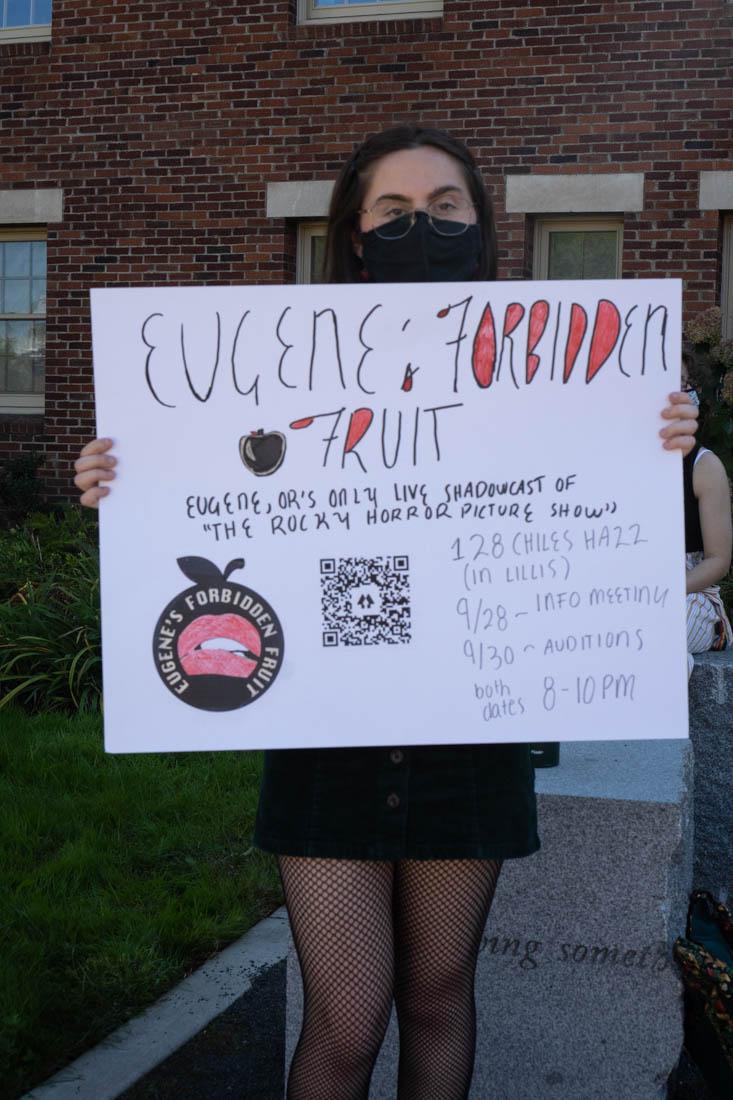 EUGENE'S FORBIDDEN
FRUIT
EUGENE, OR'S ONLY LIVE SHADOWCAST OF
"THE ROCKY HORROR PICTURE SHOW"
EUGENE'S FORBIDDEN FRUIT
128 CHILES HALL
(IN LILLIS)
9/28 - INFO MEETING
9/30 - AUDITIONS
both
dates 8-10 PM